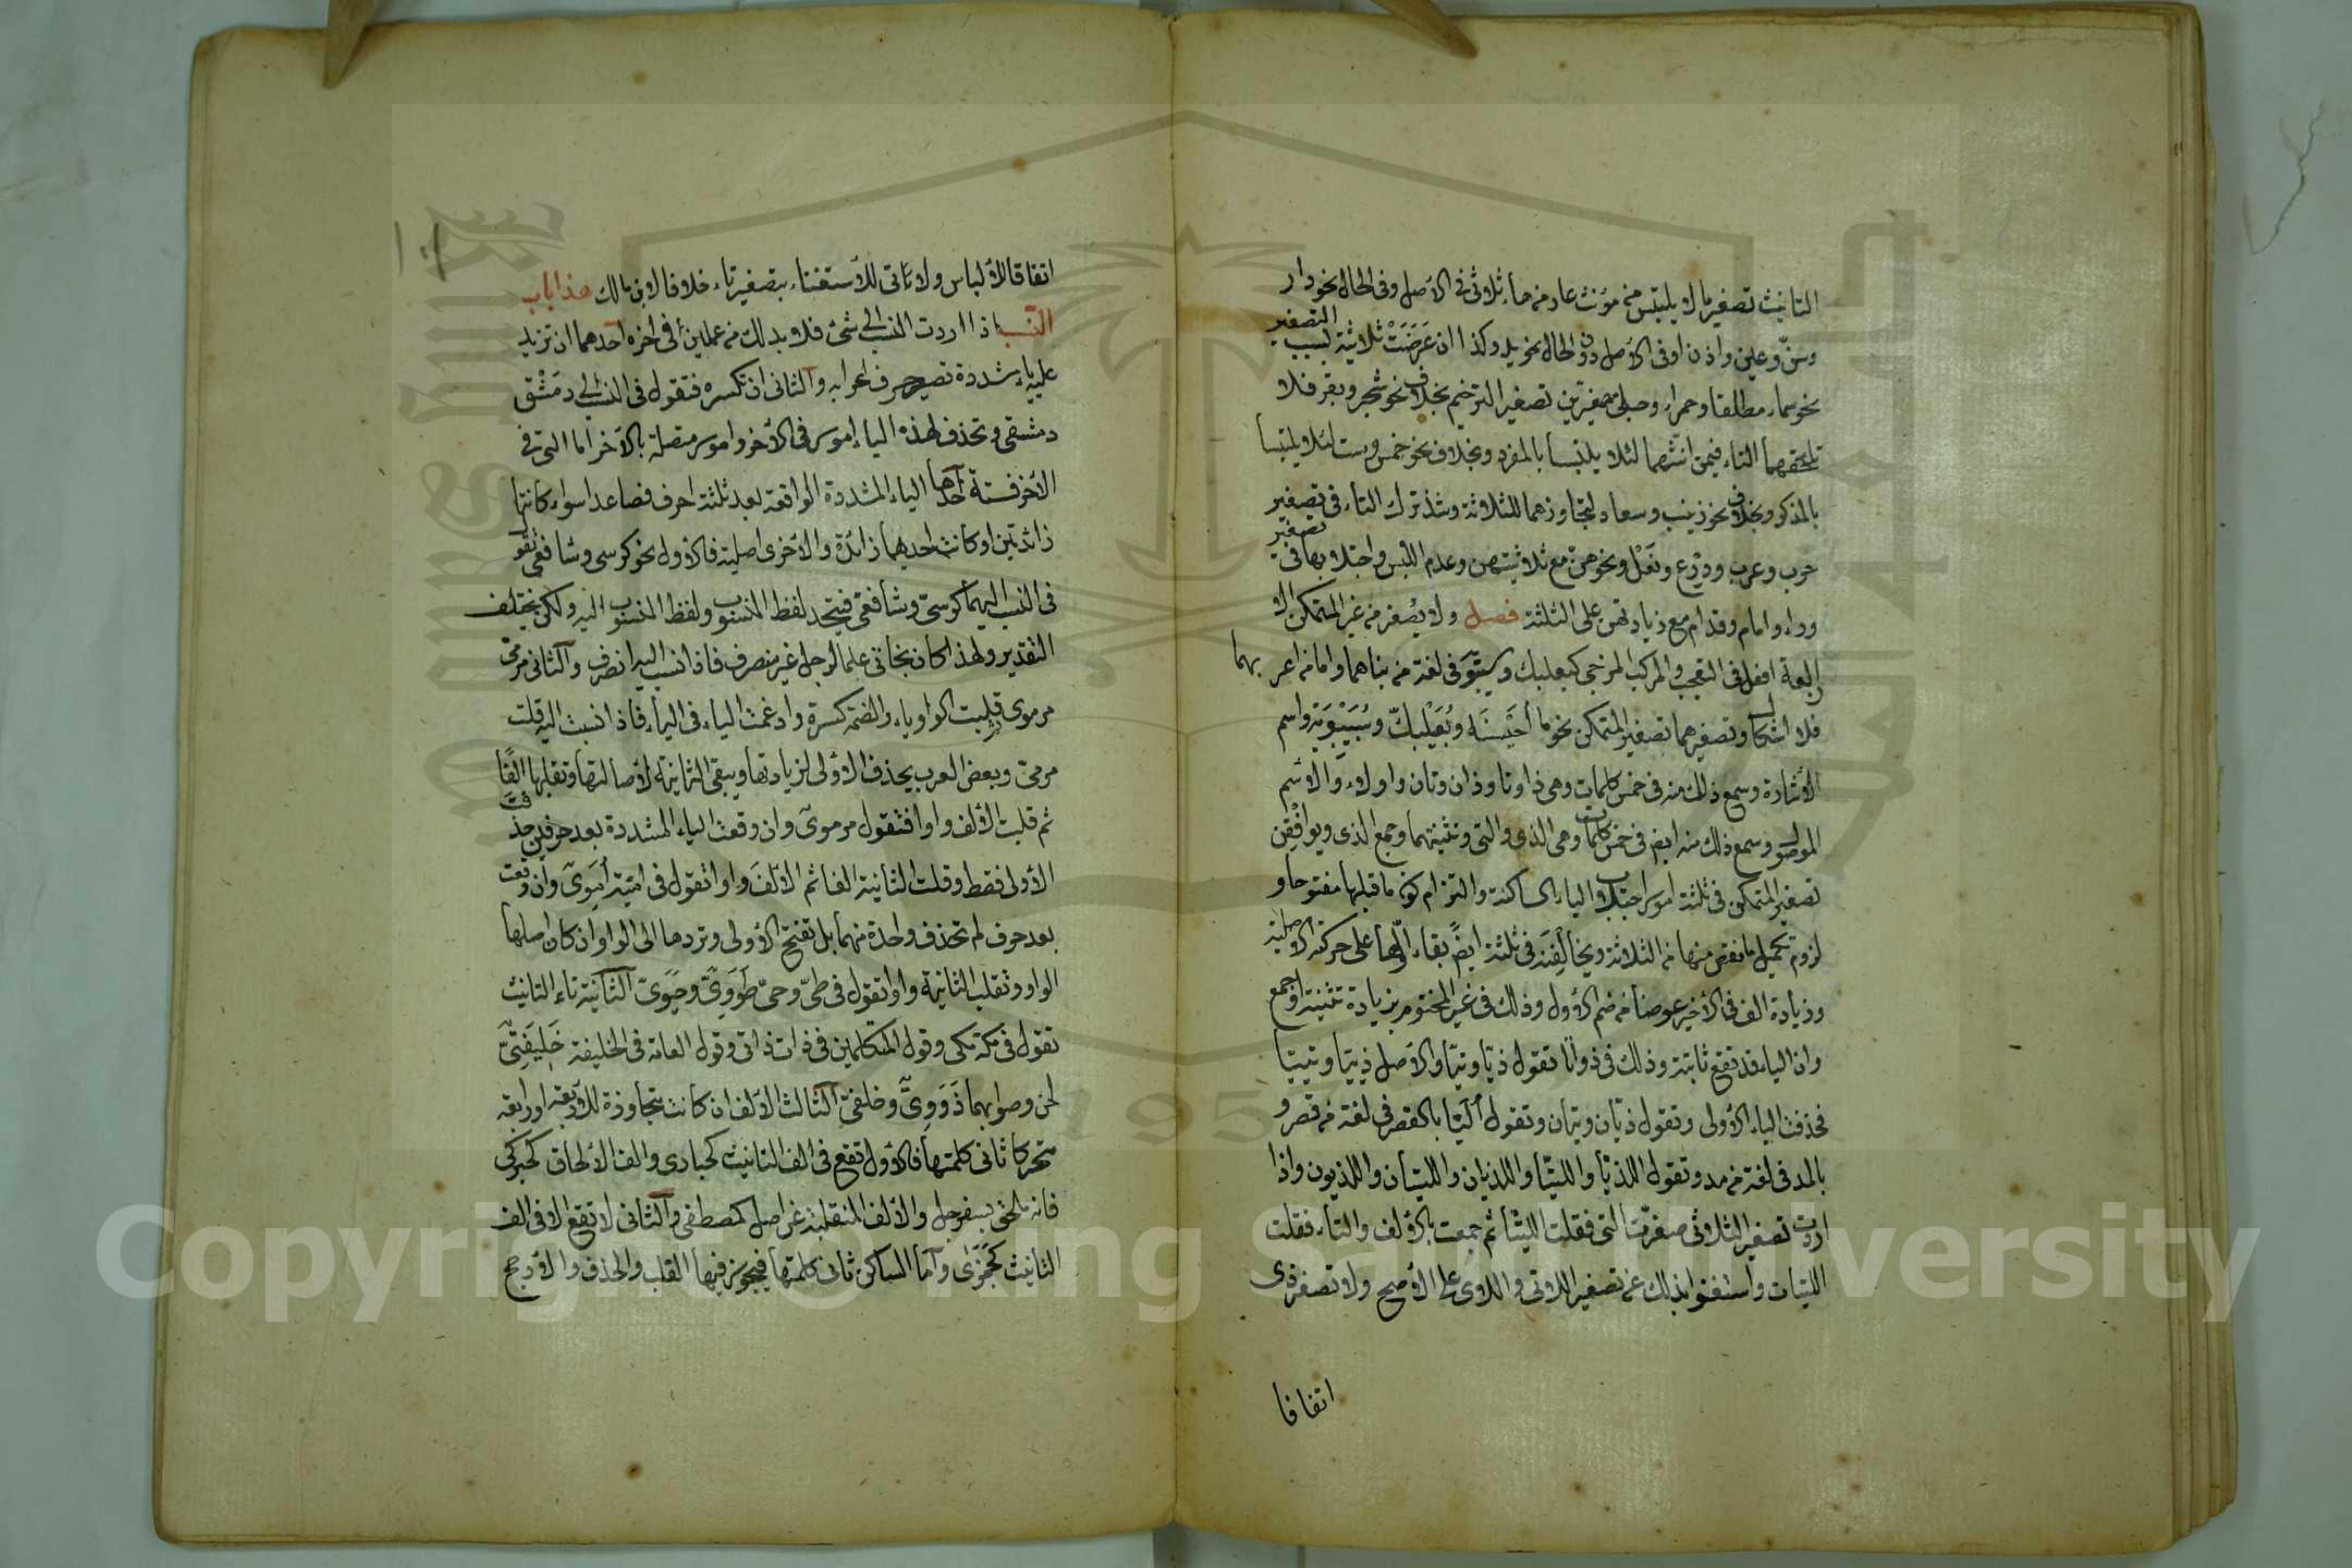 التانيث تصغير ما لا يلتبس من مؤنث عار منها ثلاثى فى الأصل وفى الحال نحو دار
وسنّ وعين واذن او فى الأصل دون الحال نحو يد وكذا ان عَرَضَتْ ثلاثيته بسبب التصغير
نحو سماء مطلقا وحمراء وحبلى مصغرتين تصغير الترخيم بخلاف نحو شجر وبقر فلا
تلحقهما التاء فيمن انثهما لئلا يلتبسا بالمفرد وبخلاف نحو خمس وست لئلا يلتبسا
بالمذكر وبخلاف نحو زينب وسعاد لتجاوزهما للثلاثة وشذ ترك التاء فى تصغير
حرب وعرب ودِرْع ونَعْل ونحوهن مع ثلاثيتهن وعدم اللبس واجتلابها فى تصغير
وراء وامام وقدام مع زيادتهن على الثلثة فصل ولا يصغر من غير المتمكن الا
اربعة افعل فى التعجب والمركب المزجى كبعلبك وسيبويه فى لغة من بناهما واما من اعربهما
فلا اشكال وتصغيرهما تصغير المتمكن نحو ما أُحَيْسِنَه وبُعَيْلِبَكّ وسُيَيْبَوَيْه واسم
الأشارة وسمع ذلك منه فى خمس كلمات وهى ذا وتا وذان وتان واولاء والاسم
الموصول وسمع ذلك منه ايضا فى خمس كلمات وهى الذى والتى وتثنيتهما وجمع الذى ويوافقن
تصغير المتمكن فى ثلثة امور اجتلاب الياء الساكنة والتزام كون ما قبلها مفتوحا و
لزوم تكميل ما نقص منها من الثلاثة ويخالِفنَه فى ثلثة ايضًا بقاء اولها على حركته الاصلية
وزيادة الف فى الأخير عوضا من ضم الأول وذلك فى غير المختوم بزيادة تثنية او جمع
وان الياء قد تقع ثانية وذلك فى ذا وتا تقول ذيّا وتيّا والأصل ذييّا وتييّا
فحذفت الياء الأولى وتقول ذيّان وتيّان وتقول أُلَيّا بالقصر فى لغة من قصر و
بالمد فى لغة من مد وتقول اللذيّا واللتيّا واللذيان واللتيان واللذيون واذا
اردت تصغير اللاتى صغرت التى فقلت اللتيّا ثم جمعت بالألف والتاء فقلت
اللتيات واستغنوا بذلك عن تصغير اللاتى واللائى على الأصح ولا تصغر ذى
اتفاقا
اتفاقا للألباس ولا تاتى للأستغناء بتصغير تاء خلافا لابن مالك هذا باب
النّسب اذا اردت النسب الى شئ فلا بد لك من عملين فى اخره احدهما ان تزيد
عليه ياء مشددة تصير حرف اعرابه والثانى ان تكسره فتقول فى النسب الى دمَشْق
دمشقى وتحذف لهذه الياء امور فى الأخر وامور متصلة بالأخر اما التى فى
الأخر فستة احدها الياء المشددة الواقعة بعد ثلثة احرف فصاعدا سواء كانتا
زائدتين او كانت احديهما زائدة والأخرى اصلية فالأول نحو كرسى وشافعى تقول
فى النسب اليهما كرسىّ وشافعىّ فيتحد لفظ المنسوب ولفظ المنسوب اليه ولكن يختلف
التقدير ولهذا كان بخاتى علما لرجل غير منصرف فاذا نسب اليه انصرف والثانى مرمىّ
مرموى قلبت الواو ياء والضمة كسرة وادغمت الياء فى الياء فاذا نسبت اليه قلت
مرمىّ وبعض العرب يحذف الأولى لزيادتها ويبقى الثانية لأصالتها وتقلبها الفًا
ثم قلبت الألف واوا فتقول مرموىّ وان وقعت الياء المشددة بعد حرفين حذفت
الأولى فقط وقلبت الثانية الفا ثم الألف واوا تقول فى امية أمَوِىّ وان وقعت
بعد حرف لم تحذف واحدة منهما بل تفتح الأولى وتردها الى الواو ان كان اصلها
الواو وتقلب الثانية واوا تقول فى طىّ وحىّ طَوَوِىّ وحيَوىّ الثانية تاء التانيث
تقول فى مكة مكى وقول المتكلمين فى ذات ذاتى وقول العامة فى الخليفة خَلِيفَتِىّ
لحن وصوابهما ذَوَوِىّ وخلفىّ الثالث الألف ان كانت متجاوزة للأربعة او رابعة
متحركا ثانى كلمتها فالأول تقع فى الف التانيث كحبارى والف الألحاق كحبركى
فانه ملحق بسفرجل والألف المنقلبة عن اصل كمصطفى والثانى لا تقع الا فى الف
التانيث كجَمَزَى واما الساكن ثانى كلمتها فيجوز فيها القلب والحذف والأرجح
Copyright © King Saud University